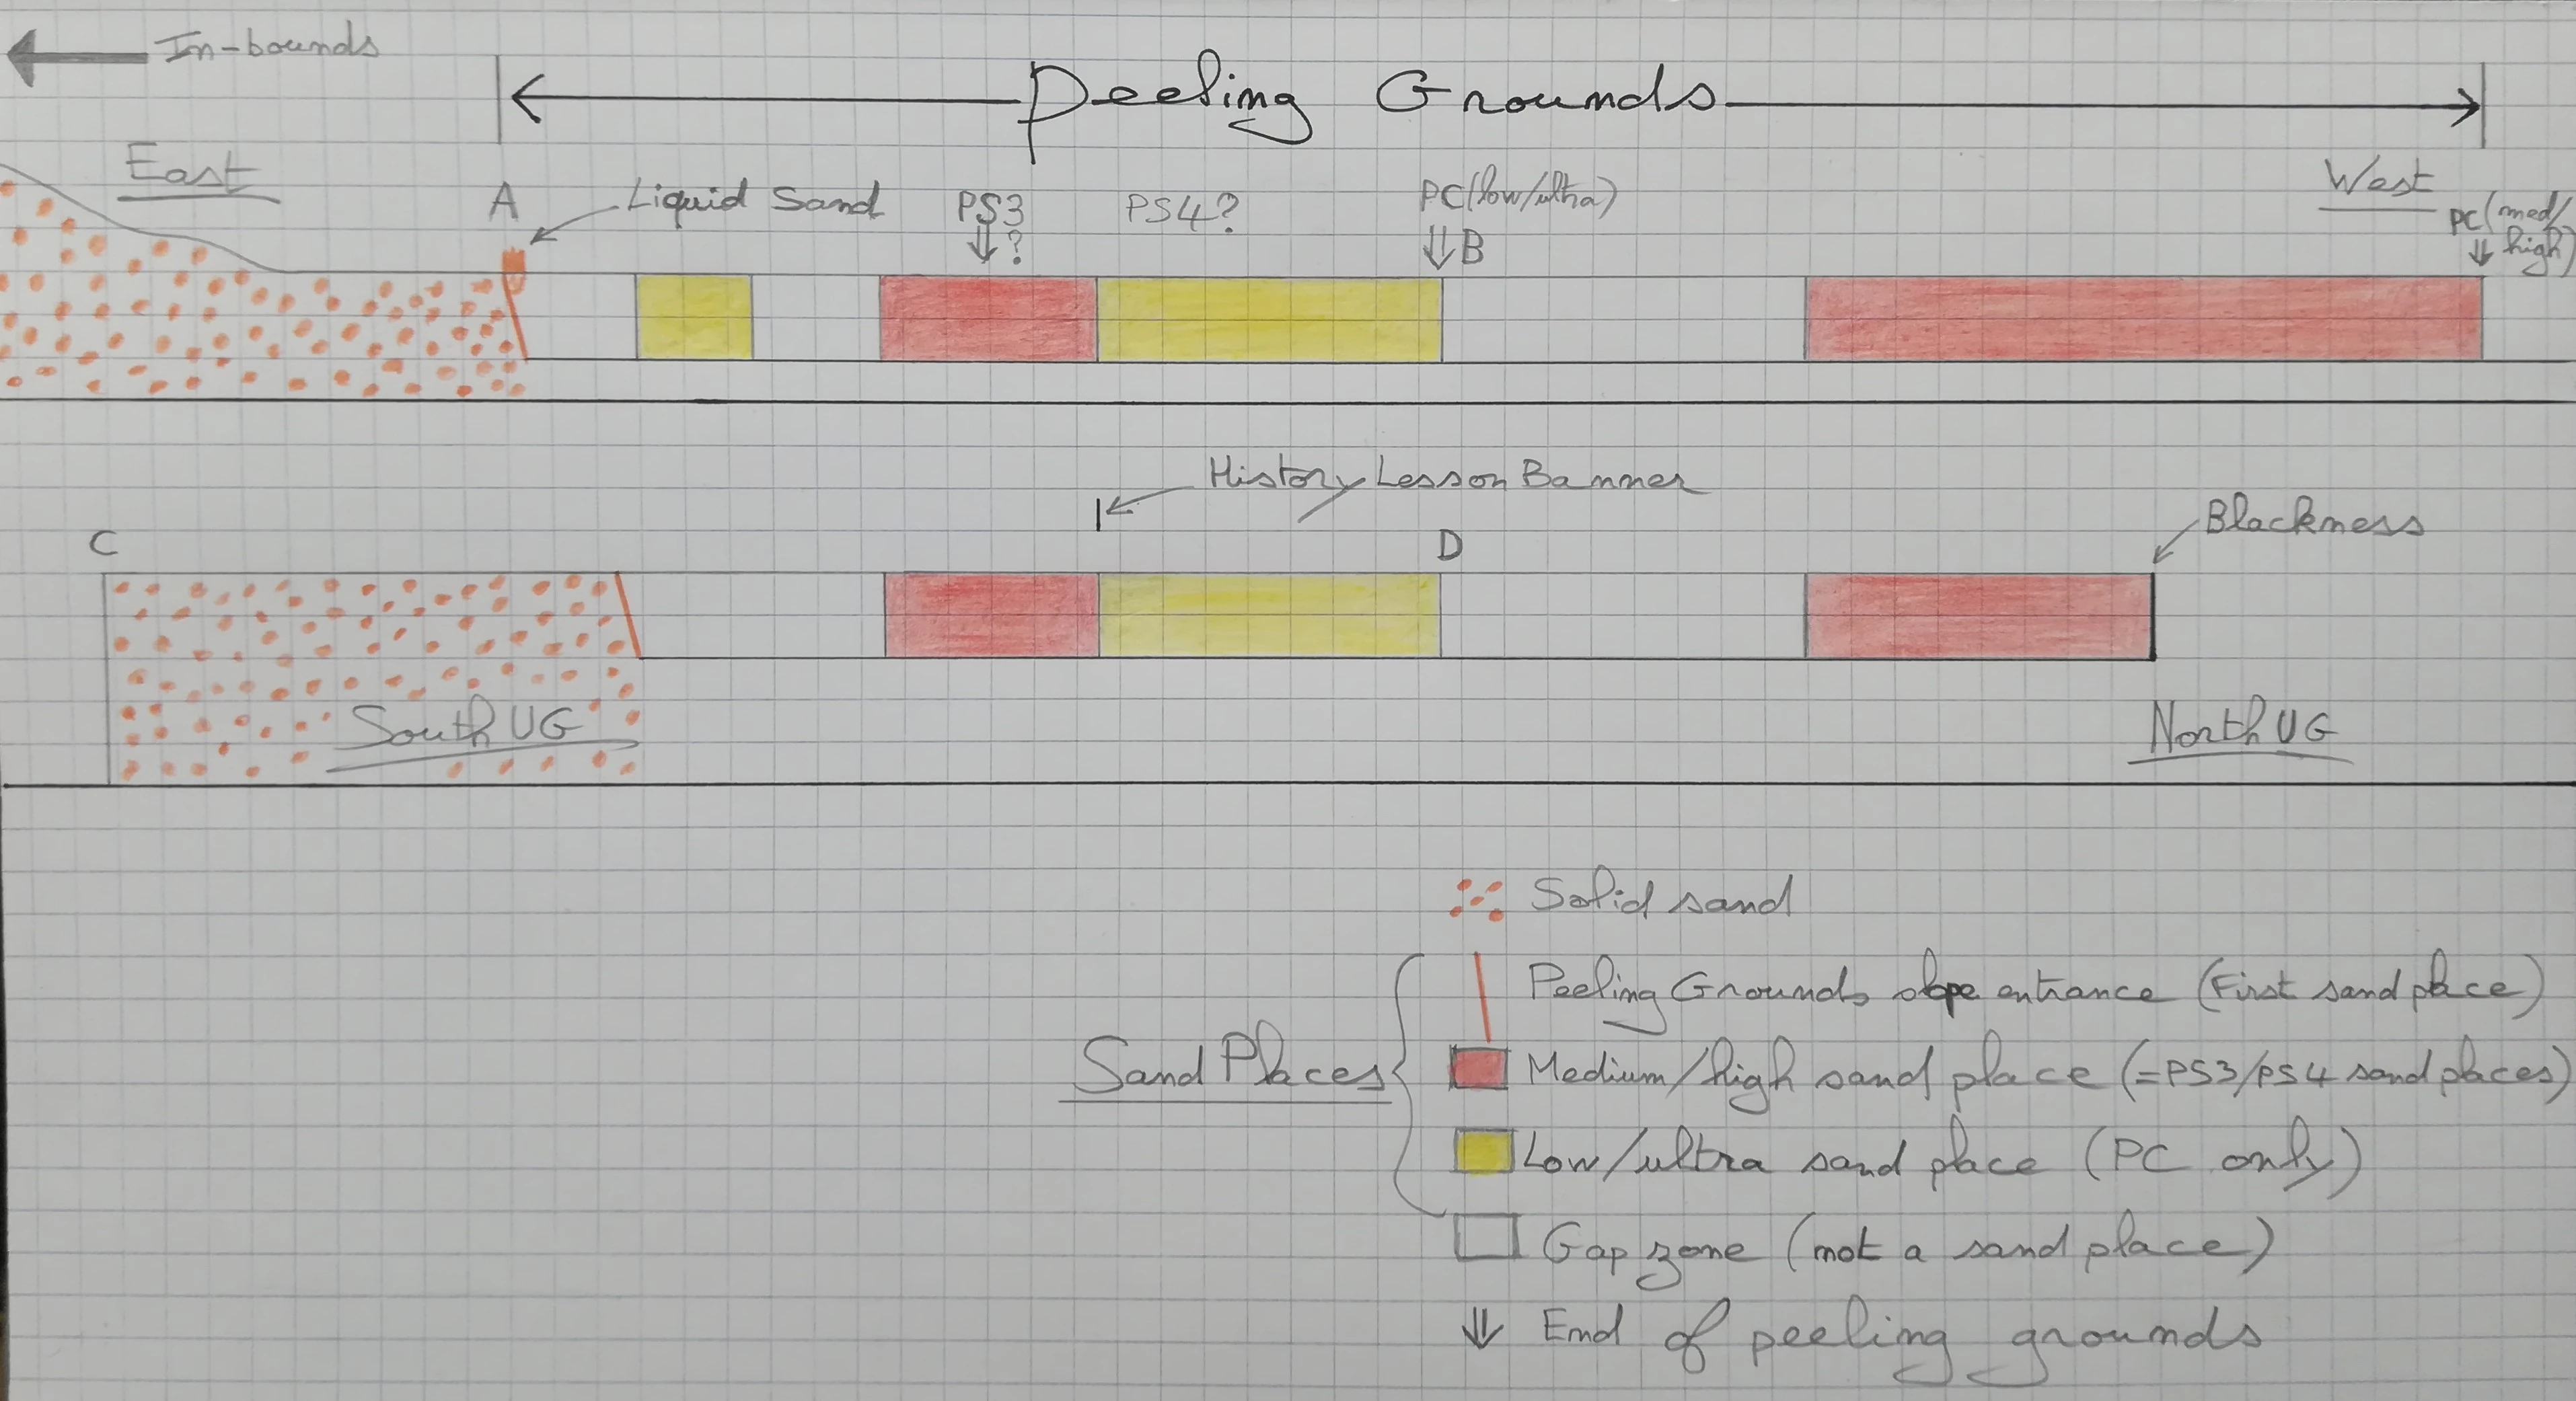 In-bounds
Peeling Grounds
East
A
Liquid Sand
PS3
?
PS4?
PC(low/ultra)
B
West
PC(med/
high)
History Lesson Banner
C
D
Blackness
South UG
North UG
Solid sand
Peeling Grounds slope entrance (First sand place)
Sand Places
Medium/high sand place (=PS3/PS4 sand places)
Low/ultra sand place (PC only)
Gap zone (not a sand place)
End of peeling grounds